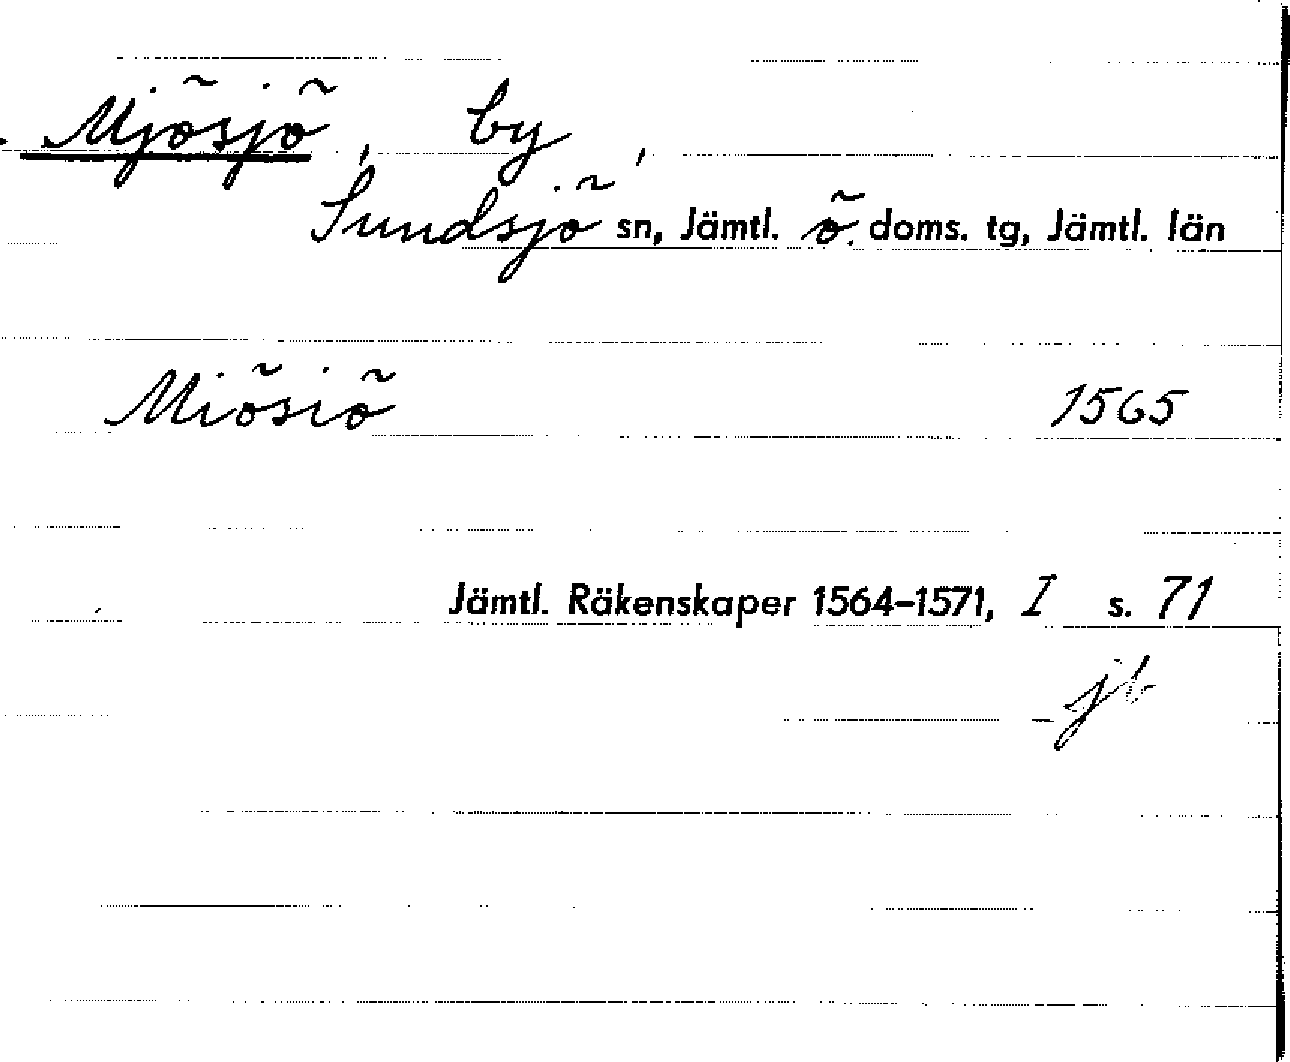 Mjösjö, by,
Sundsjö sn, Jämtl. ö. doms. tg, Jämtl. län
Miösiö 1565
Jämtl. Räkenskaper 1564-1571, I s. 71
jb